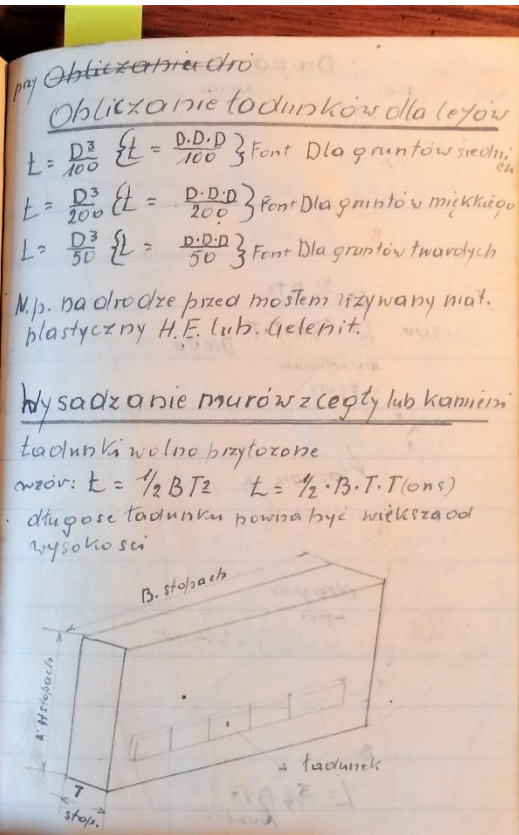 przy Obliczanie dró
Obliczanie ładunków dla lejów
Ł = D³/100 {Ł = D.D.D/100} Font Dla gruntów średnich
Ł = D³/200 {Ł = D.D.D/200} Font Dla gruntów miękkiego
Ł = D³/50 {Ł = D.D.D/50} Font Dla gruntów twardych
N.p. na drodze przed mostem używany mat.
plastyczny H.E. lub. Gelenit.
Wysadzanie murów z cegły lub kamieni
Ładunki wolno przyłożone
wzór: Ł = ½ BT² Ł = ½·B·T·T (ons)
długość ładunku powna być większa od
wysokości
B. stopach
H stopach
ładunek
T
stop.